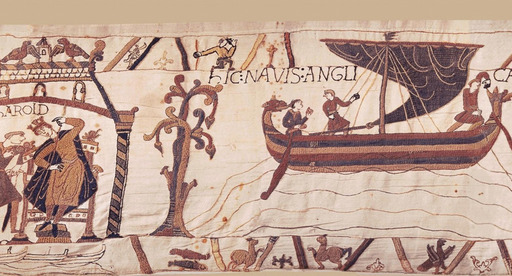 AROLD
hIC:NAVIS:ANGLI
CA